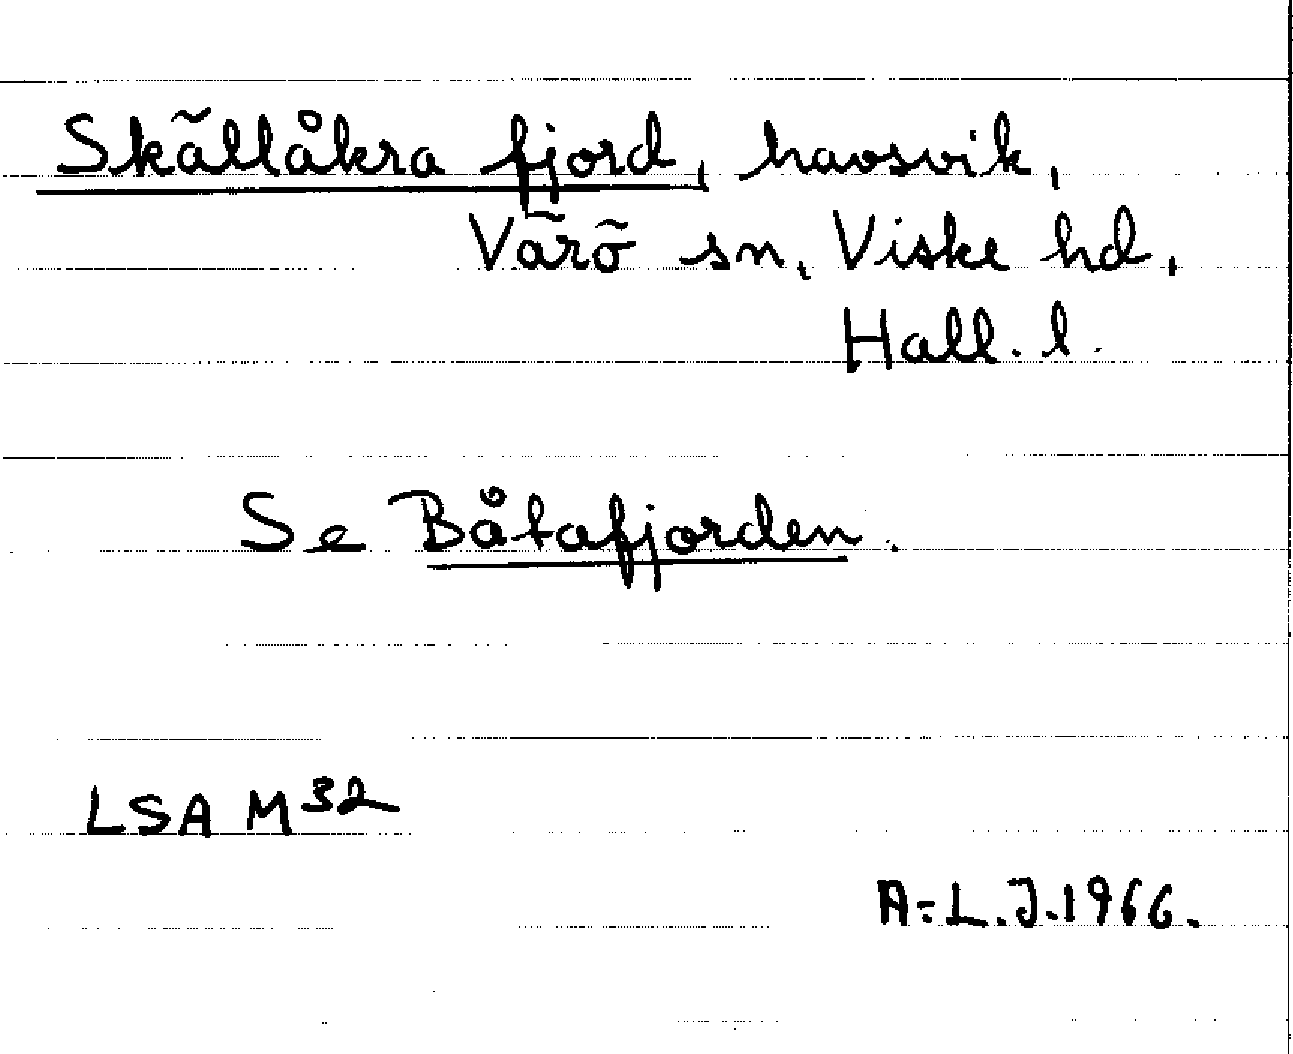 Skällåkra fjord, havsvik,
Värö sn, Viske hd,
Hall. l.
Se Båtafjorden.
LSA M32
A-L.J.1966.